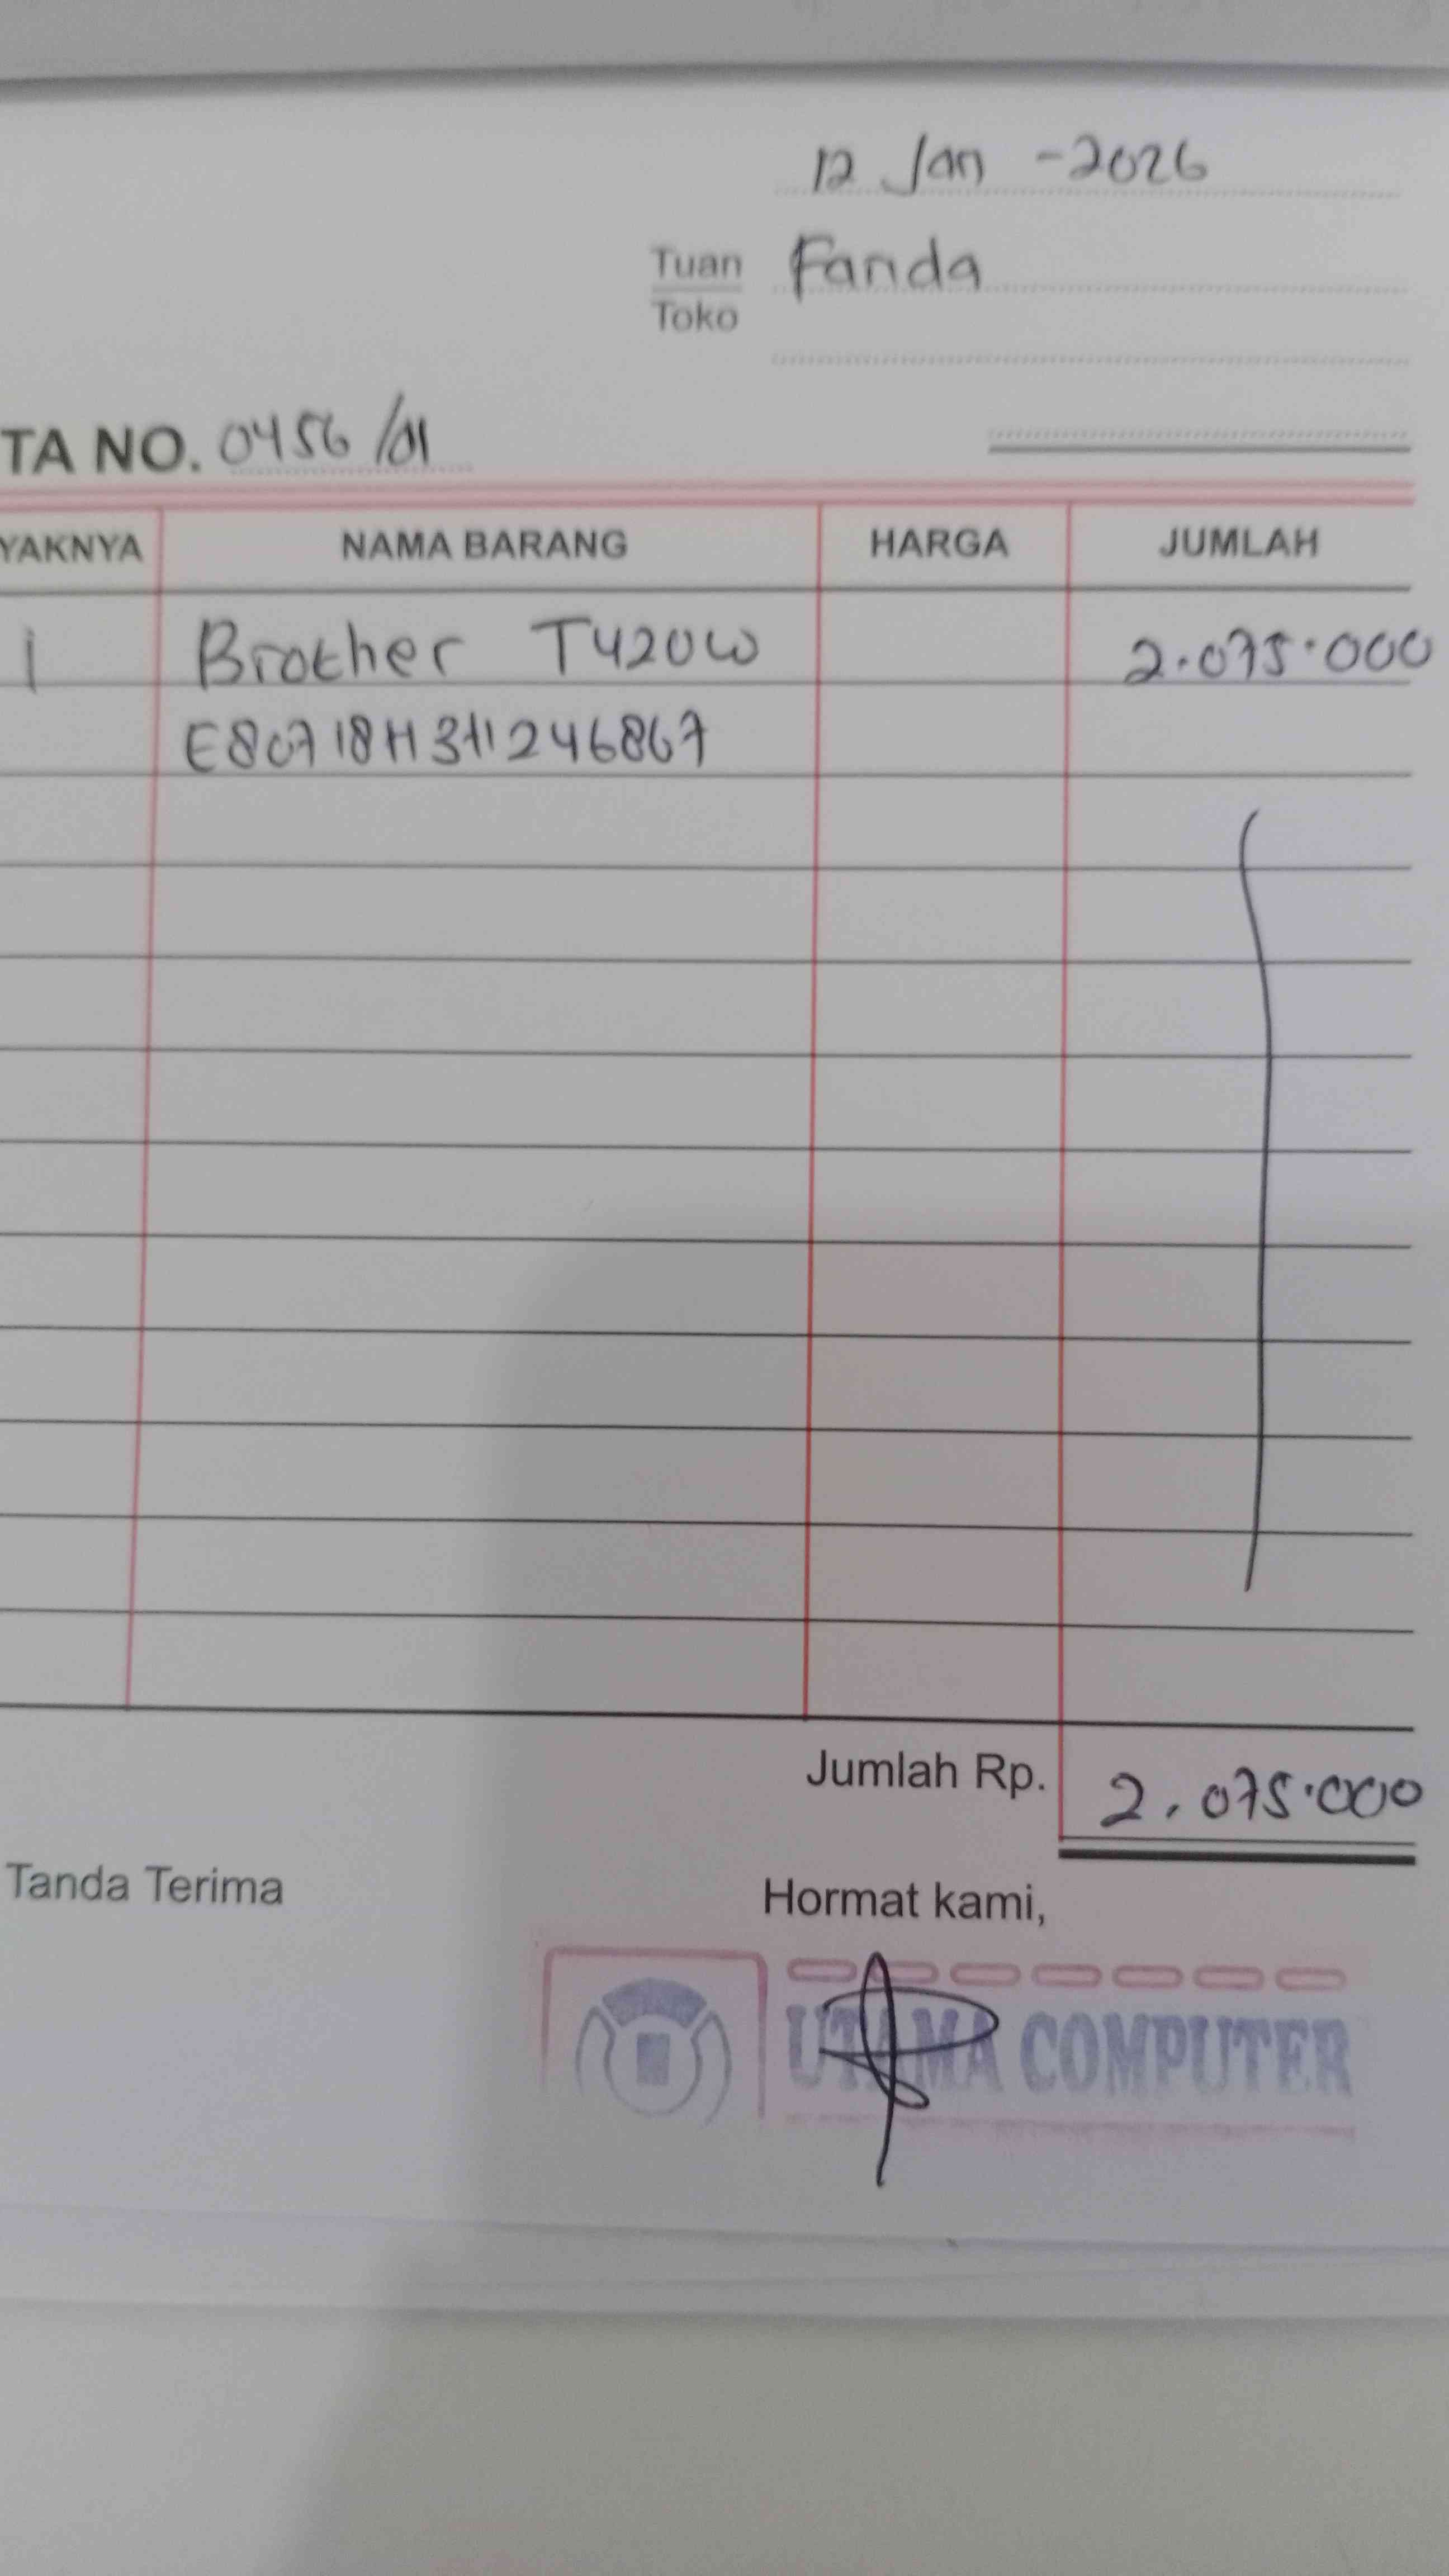 12 Jan - 2026
Tuan Fanda
Toko
TA NO. 0456/01
YAKNYA NAMA BARANG HARGA JUMLAH
1 Brother T420W 2.075.000
E80718H3H246867
Jumlah Rp. 2.075.000
Tanda Terima Hormat kami,
UTAMA COMPUTER